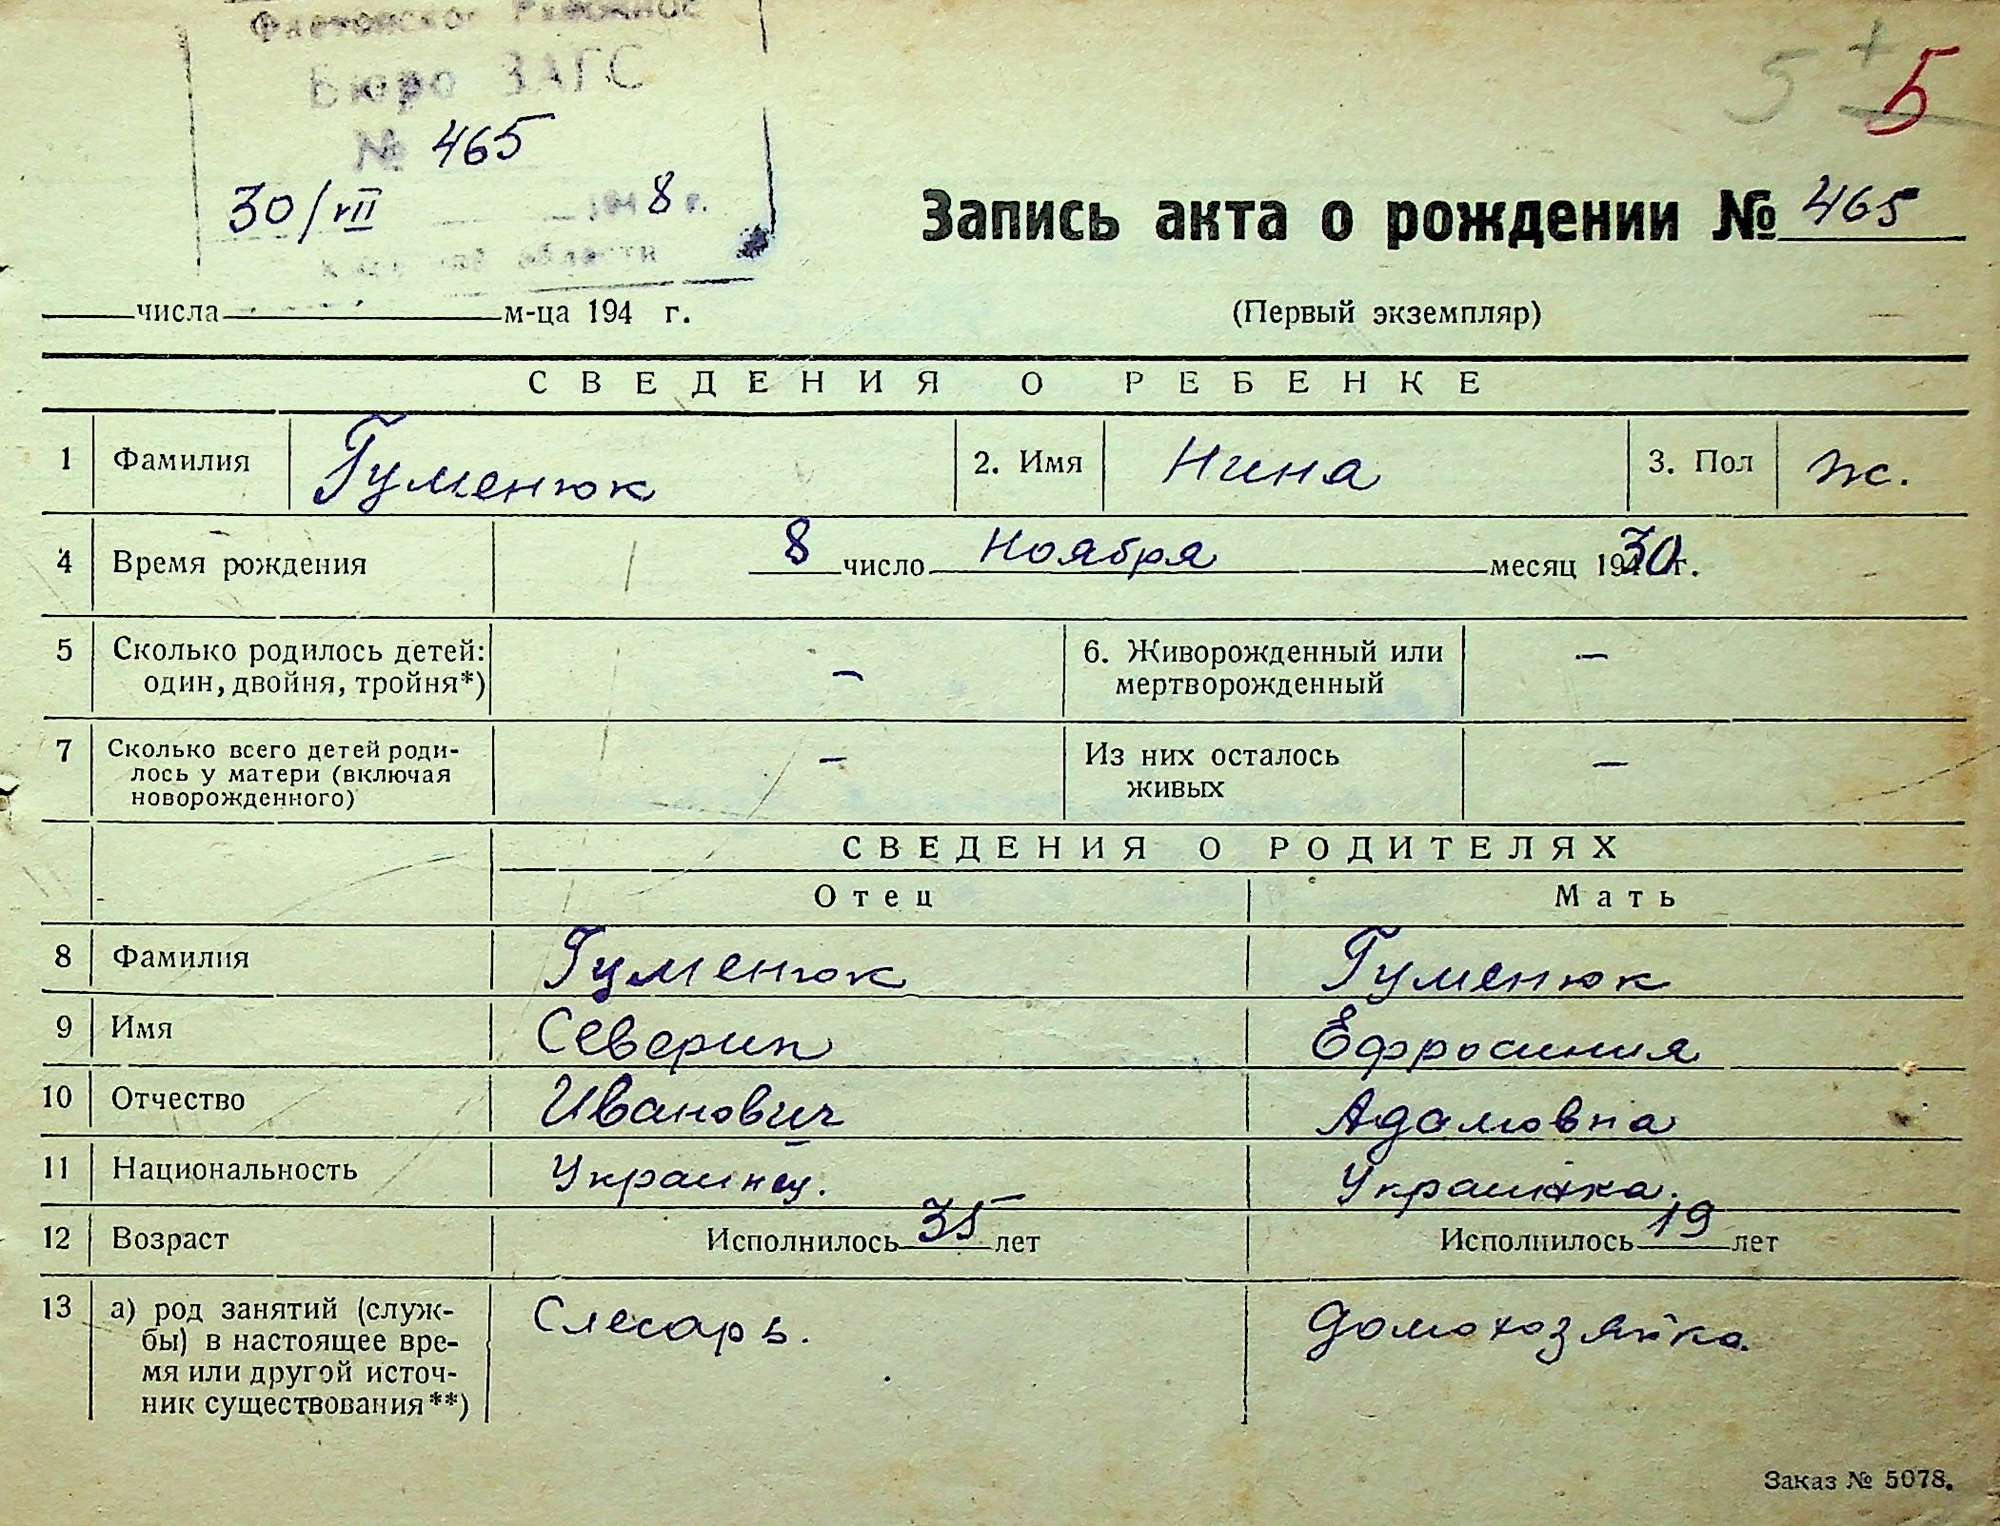 Фастовское Районное
Бюро ЗАГС
№ 465
30/VII 1948 г.
Киевской области
5 + 5
Запись акта о рождении № 465
числа м-ца 194 г.
(Первый экземпляр)
СВЕДЕНИЯ О РЕБЕНКЕ
1 Фамилия Гуменюк 2. Имя Нина 3. Пол ж.
4 Время рождения 8 число Ноября месяц 1930 г.
5 Сколько родилось детей: 6. Живорожденный или
один, двойня, тройня*) — мертворожденный —
7 Сколько всего детей роди- Из них осталось
лось у матери (включая — живых —
новорожденного)
СВЕДЕНИЯ О РОДИТЕЛЯХ
Отец Мать
8 Фамилия Гуменюк Гуменюк
9 Имя Северин Ефросиния
10 Отчество Иванович Адамовна
11 Национальность Украинец. Украинка.
12 Возраст Исполнилось 35 лет Исполнилось 19 лет
13 а) род занятий (служ- Слесарь. Домохозяйка.
бы) в настоящее вре-
мя или другой источ-
ник существования**)
Заказ № 5078.